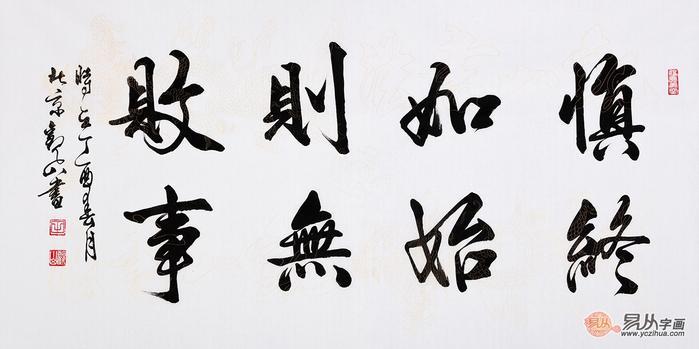 慎終
如始
則無
敗事
時在丁酉春月
北京山書
易从
易从字画
www.yczihua.com